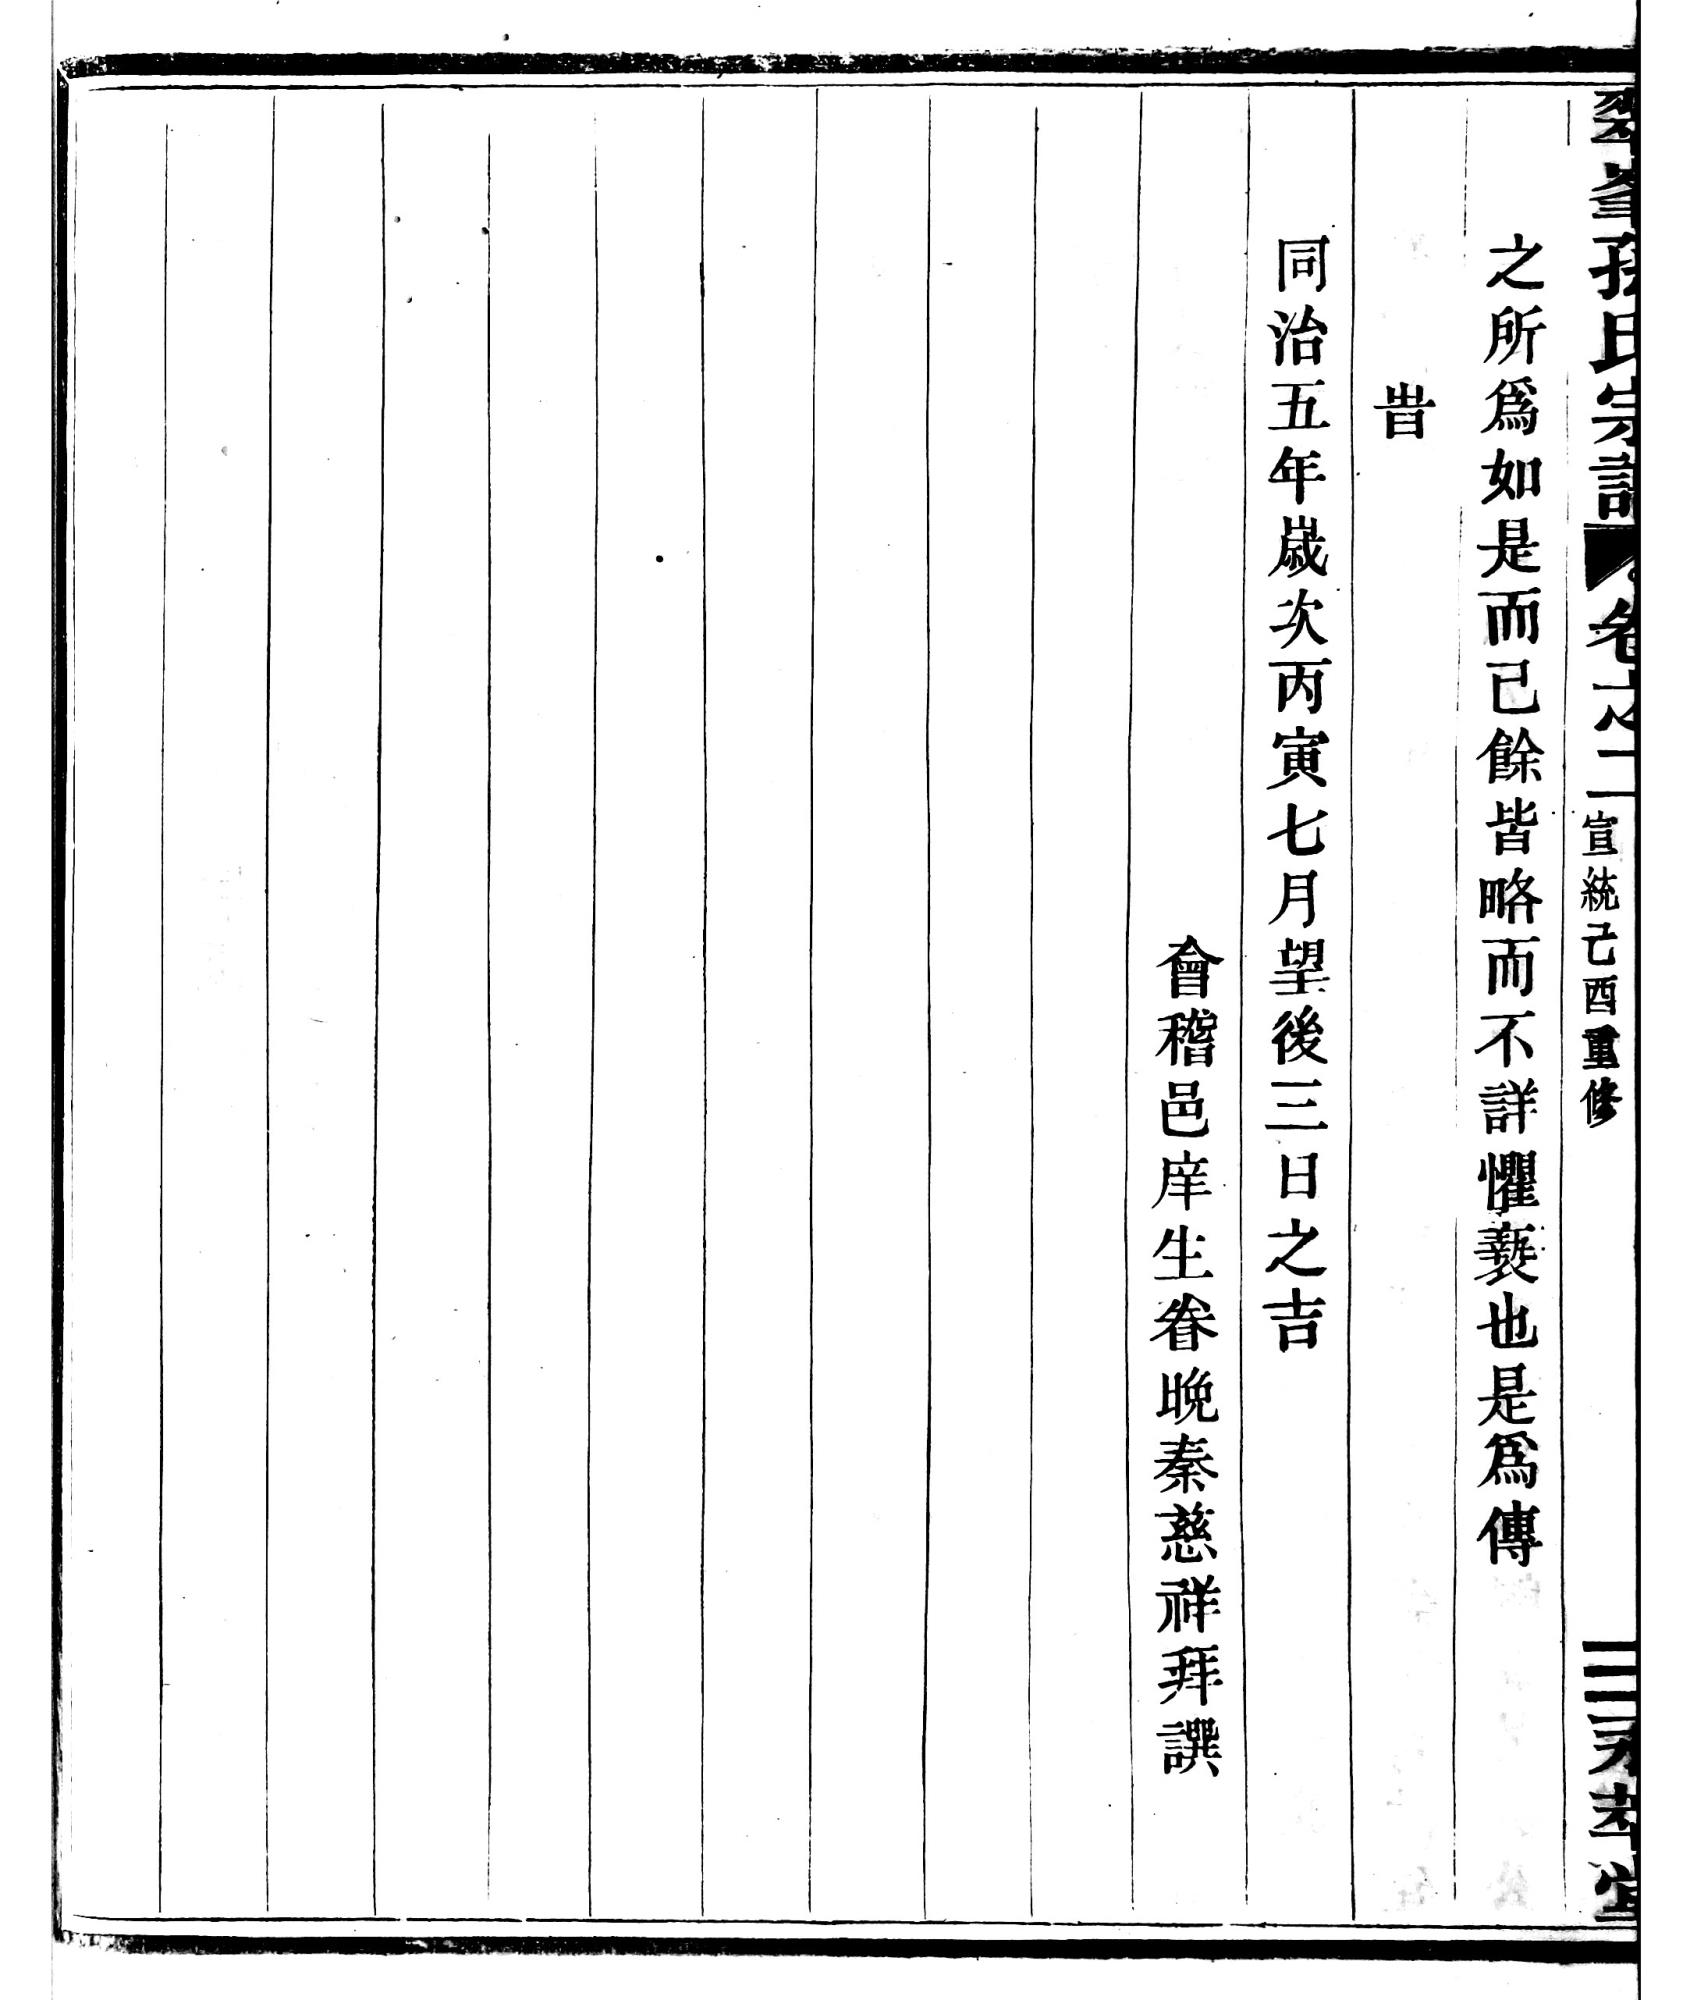 孫氏宗譜 卷之二 宣統己酉重修
之所爲如是而已餘皆略而不詳懼褻也是爲傳
旹
同治五年歲次丙寅七月望後三日之吉
會稽邑庠生眷晚秦慈祥拜譔